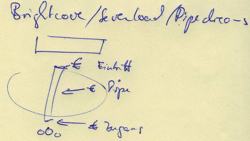 Brightcove/Sevenload/Pipedreams
€ Eintritt
€ Pipe
€ Zugang